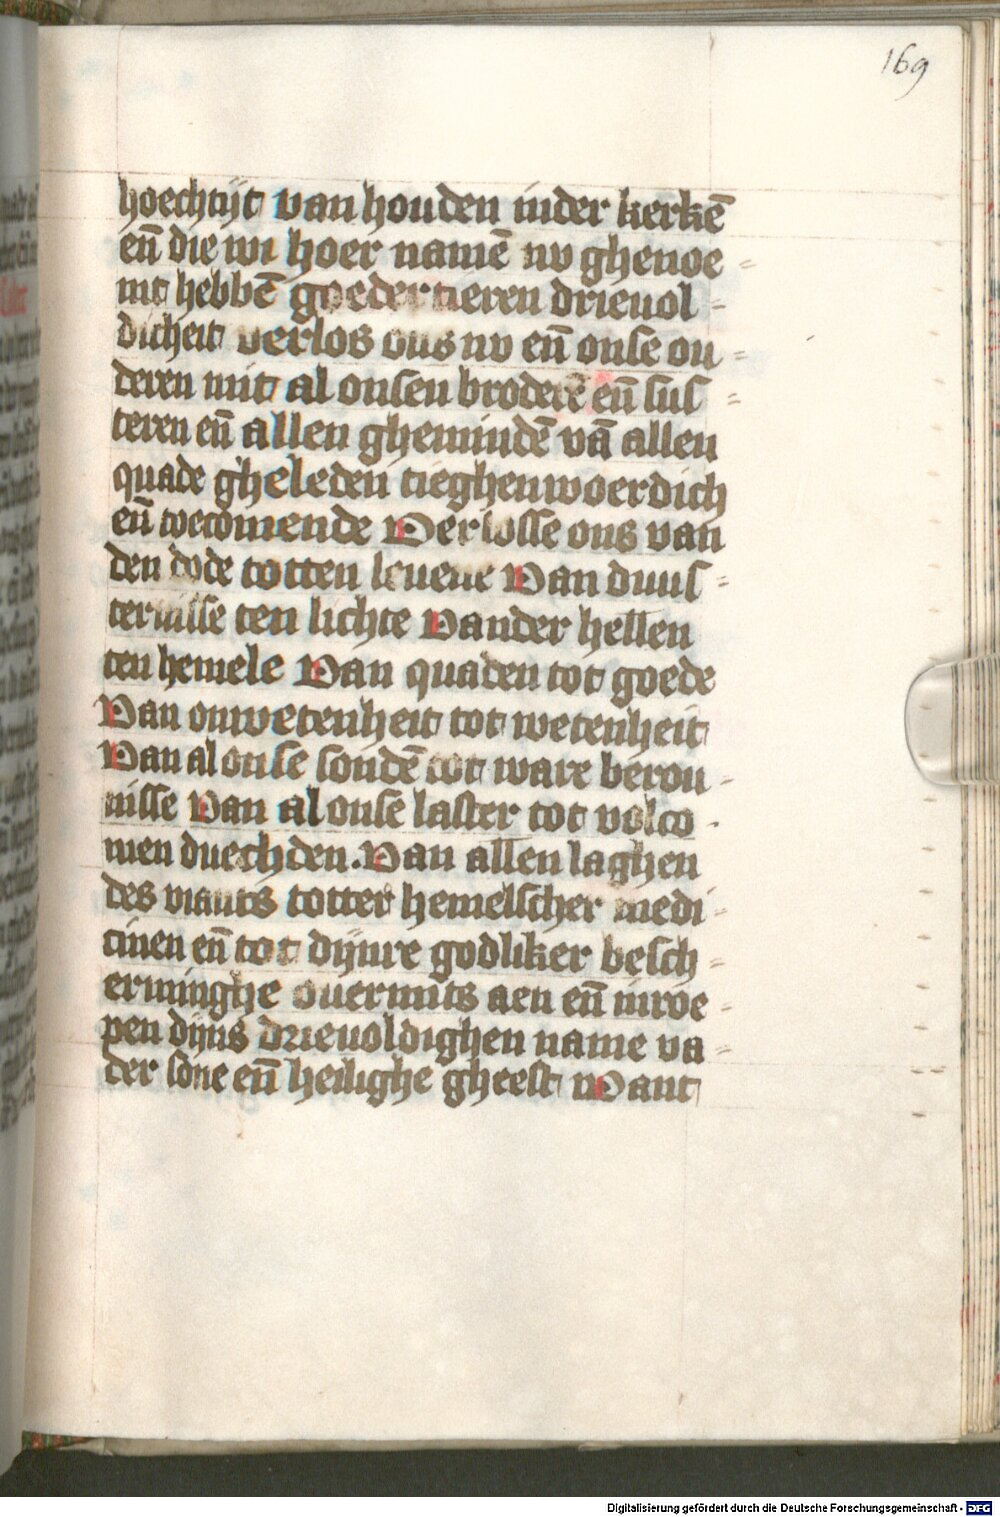 169
hoechtijt van houden inder kerkē
eñ die wi hoer namē nv ghenoe
mt hebbē goedertieren drieuol
dicheit verlos ons nv eñ onse ou
deren mit al onsen broderē eñ sus
teren eñ allen ghemindē vā allen
quade gheleden tieghenwoerdich
eñ toecomende Verlosse ons van
den dode totten leuene Van duus
ternisse ten lichte Vander hellen
ten hemele Van quaden tot goede
Van onwetenheit tot wetenheit
Van al onse sondē tot ware berou
nisse Van al onse laster tot volco
men duechden. Van allen laghen
des viants totter hemelscher medi
cinen eñ tot dijnre godliker besch
erminghe ouermits aen eñ inroe
pen dijns drieuoldighen name va
der sone eñ heilighe gheest Want
Digitalisierung gefördert durch die Deutsche Forschungsgemeinschaft - DFG